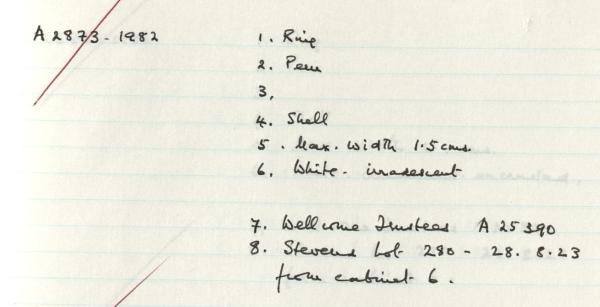 A 2873-1982
1. Ring
2. Peru
3.
4. Shell
5. Max. width 1.5 cms.
6. White - irradescent
7. Wellcome Trustees A 25390
8. Stevens Lot 280 - 28. 8. 23
from cabinet 6.